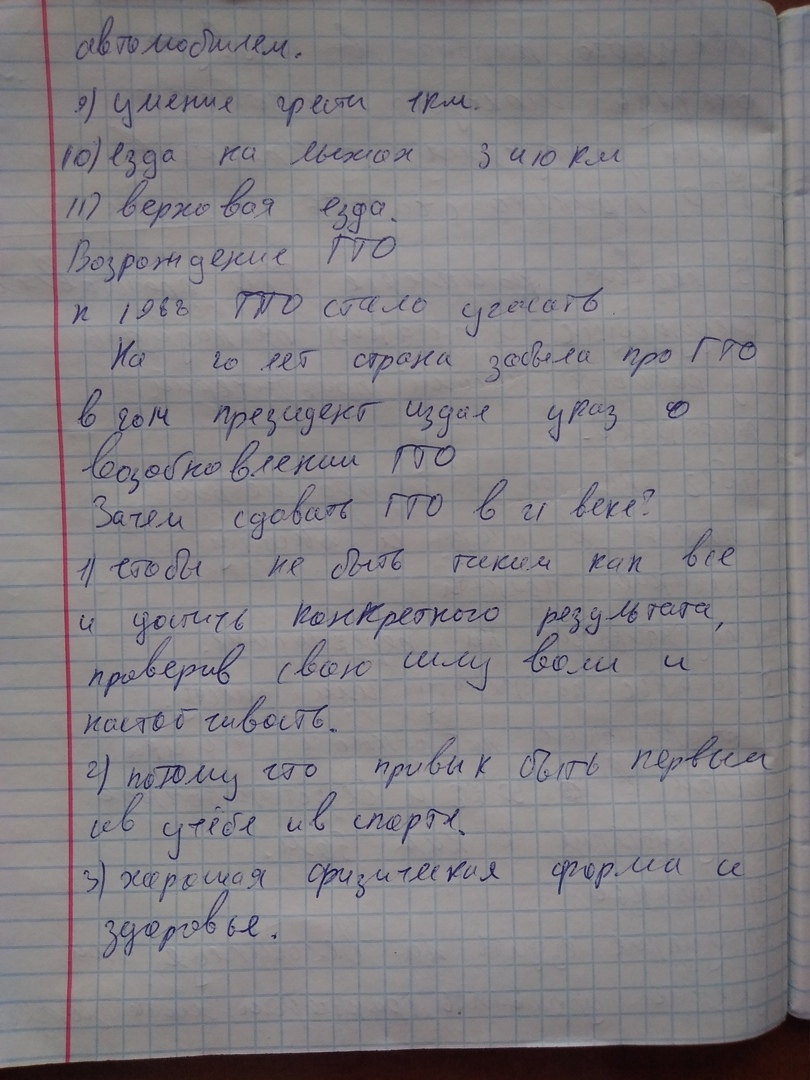 автомобилем.
9) умение грести 1км.
10) езда на лыжах 3 и 10 км
11) верховая езда.
Возрождение ГТО
к 196г ГТО стало угасать.
На 20 лет страна забыла про ГТО
в президент издал указ о
возобновлении ГТО
Зачем сдавать ГТО в 21 веке?
1) чтобы не быть таким как все
и достичь конкретного результата,
проверив свою силу воли и
настойчивость.
2) потому что привык быть первым
и в учёбе и в спорте.
3) хорошая физическая форма и
здоровье.